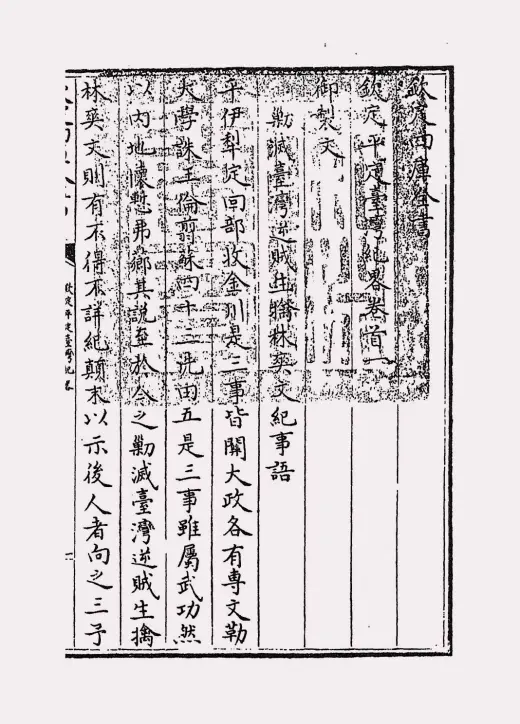 欽定四庫全書
欽定平定臺灣紀畧卷首一
御製文
勦滅臺灣逆賊生擒林爽文紀事語
平伊犁定回部收金川是三事皆關大政各有專文勒
太學誅王倫翦蘇四十三洗田五是三事雖屬武功然
以內地懷慙弗薌其說至於今之勦滅臺灣逆賊生擒
林爽文則有不得不詳紀顛末以示後人者向之三予
欽定平定臺灣紀畧